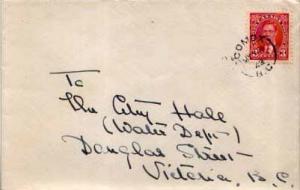 CANADA
3
COMOX
B.C.
To
The City Hall
(Water Dep-)
Douglas Street
Victoria, B.C